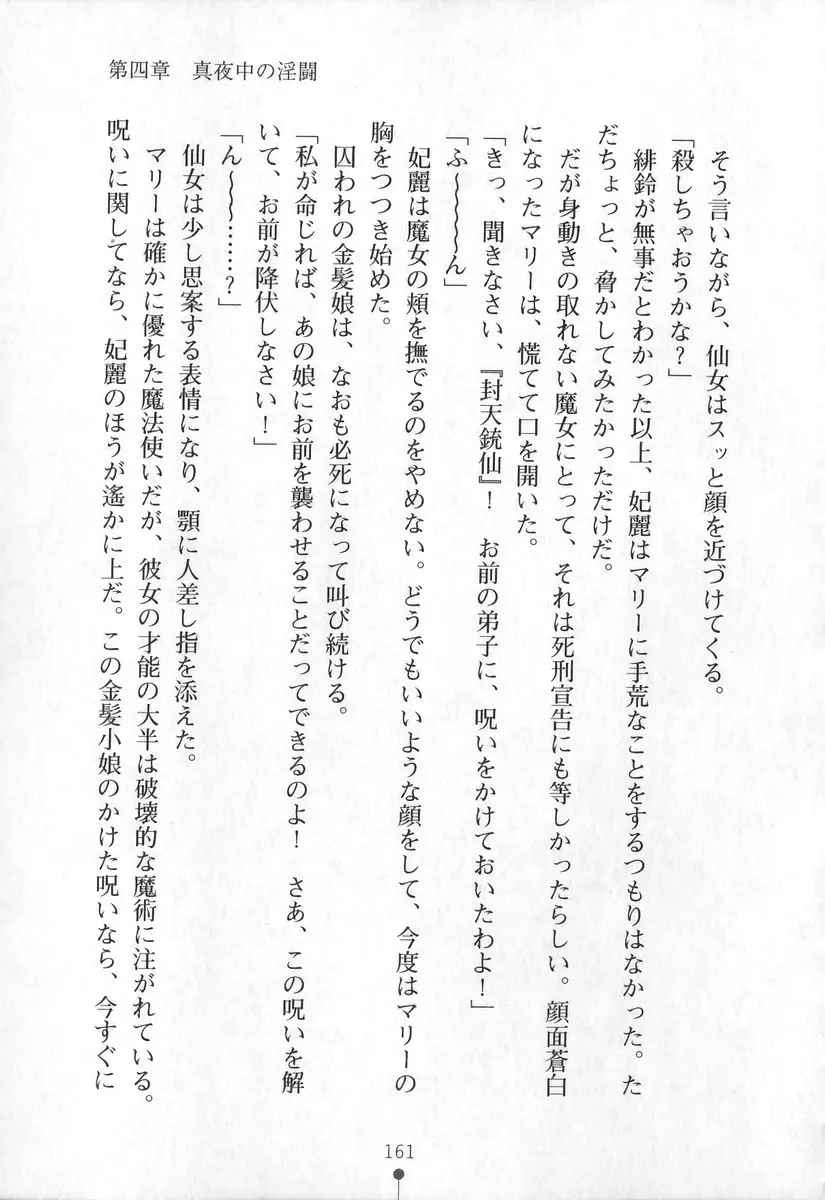 第四章　真夜中の淫闘
　そう言いながら、仙女はスッと顔を近づけてくる。
「殺しちゃおうかな？」
　緋鈴が無事だとわかった以上、妃麗はマリーに手荒なことをするつもりはなかった。た
だちょっと、脅かしてみたかっただけだ。
　だが身動きの取れない魔女にとって、それは死刑宣告にも等しかったらしい。顔面蒼白
になったマリーは、慌てて口を開いた。
「きっ、聞きなさい、『封天銃仙』！　お前の弟子に、呪いをかけておいたわよ！」
「ふ～～～～ん」
　妃麗は魔女の頬を撫でるのをやめない。どうでもいいような顔をして、今度はマリーの
胸をつつき始めた。
　囚われの金髪娘は、なおも必死になって叫び続ける。
「私が命じれば、あの娘にお前を襲わせることだってできるのよ！　さあ、この呪いを解
いて、お前が降伏しなさい！」
「ん～～～……？」
　仙女は少し思案する表情になり、顎に人差し指を添えた。
　マリーは確かに優れた魔法使いだが、彼女の才能の大半は破壊的な魔術に注がれている。
呪いに関してなら、妃麗のほうが遙かに上だ。この金髪小娘のかけた呪いなら、今すぐに
161